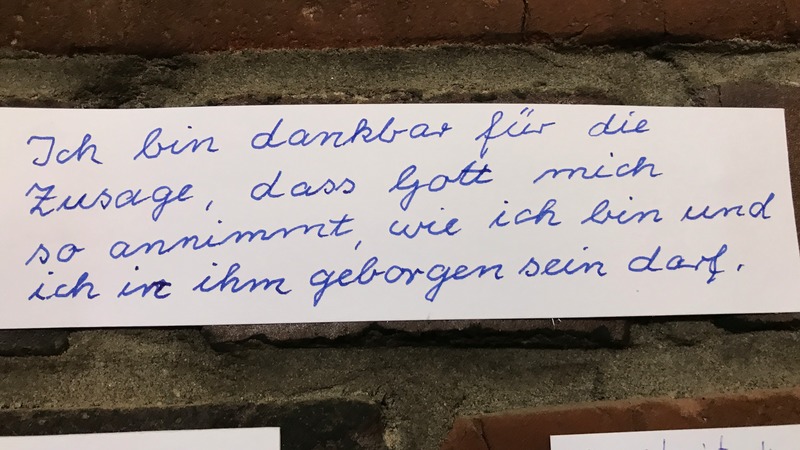 Ich bin dankbar für die
Zusage, dass Gott mich
so annimmt, wie ich bin und
ich in ihm geborgen sein darf.